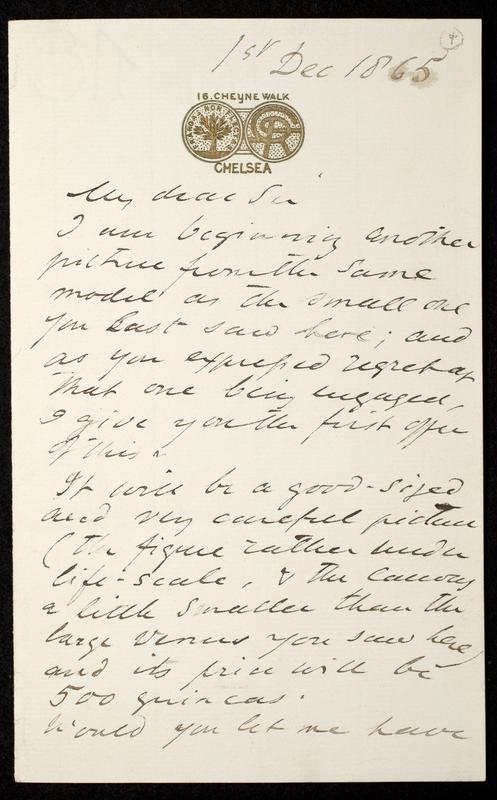 1st Dec 1865
4
16. CHEYNE WALK
CHELSEA
My dear Sir
I am beginning another
picture from the same
model as the small one
you last saw here; and
as you expressed regret at
that one being engaged,
I give you the first offer
of this.
It will be a good-sized
and very careful picture
(the figure rather under
life-scale, & the canvas
a little smaller than the
large Venus you saw here)
and its price will be
500 guineas.
Would you let me have